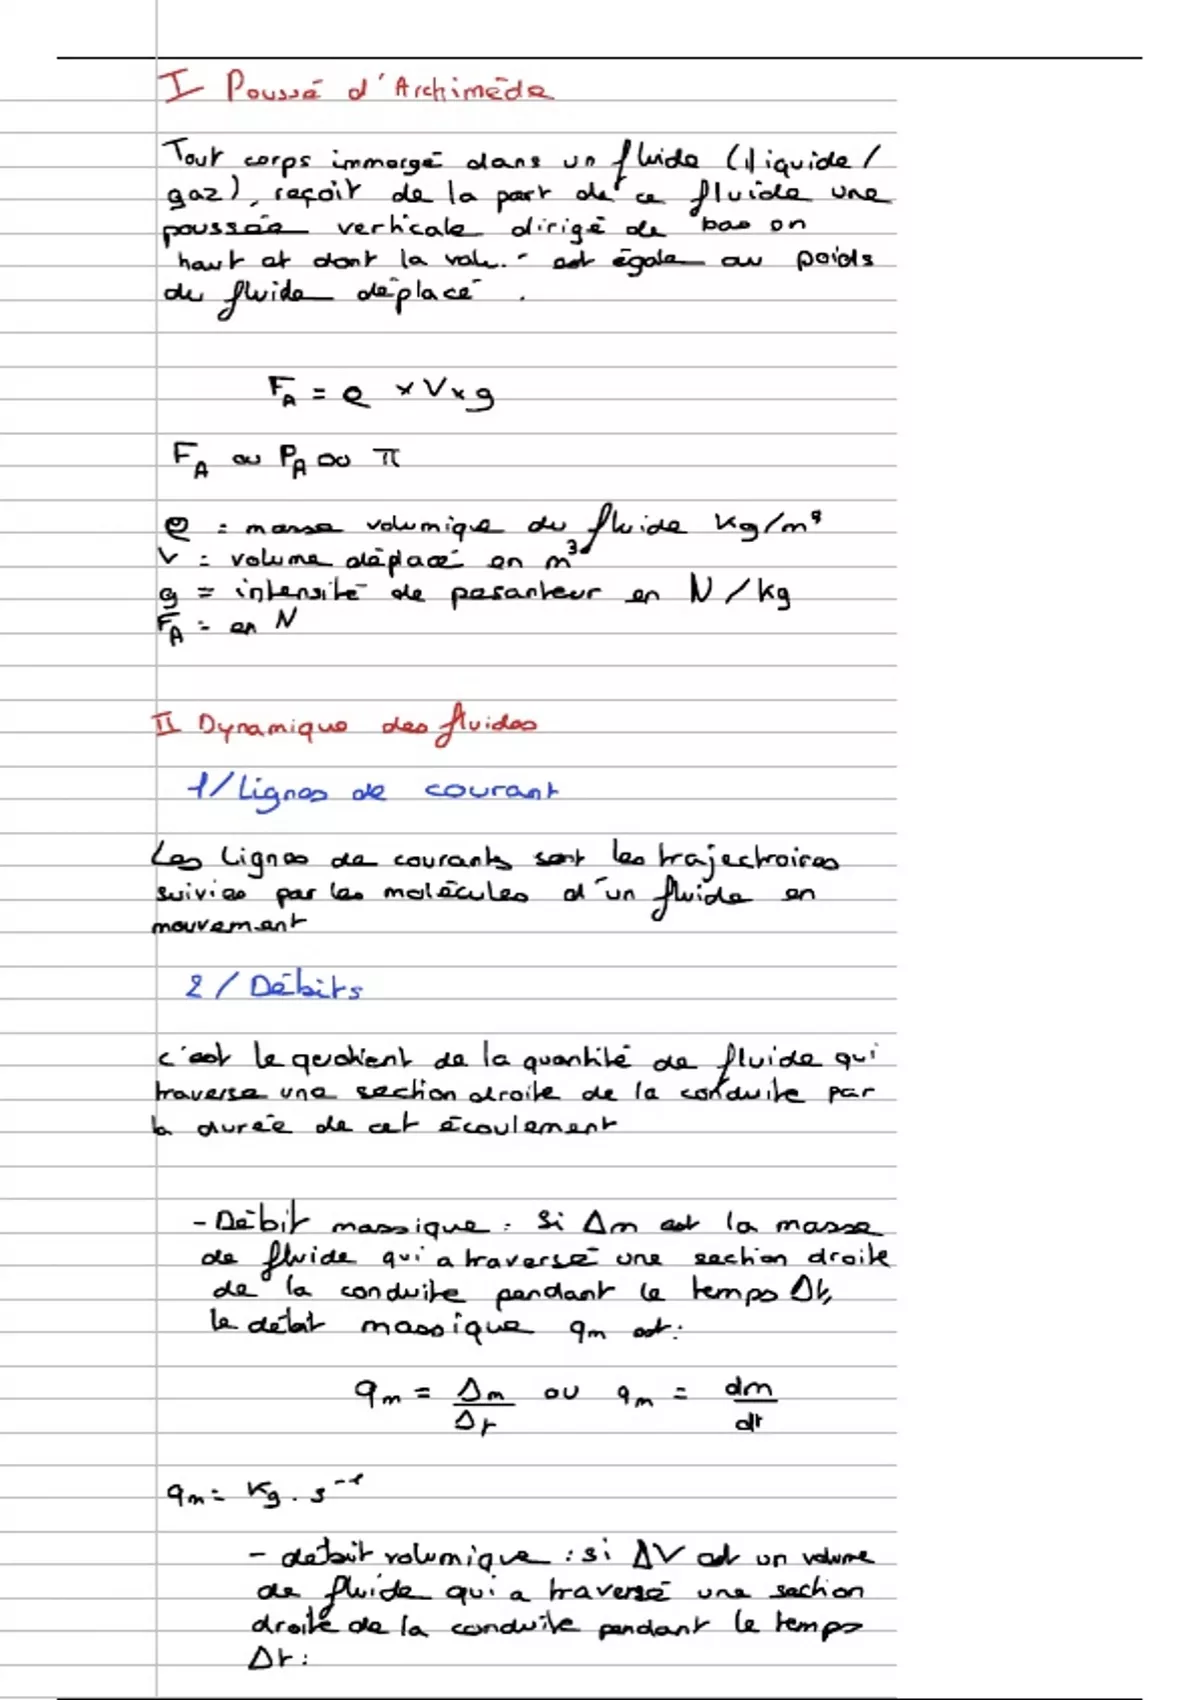 I Poussé d'Archimède
Tout corps immergé dans un fluide (liquide /
gaz), reçoit de la part de ce fluide une
poussée verticale dirigé de bas en
haut et dont la vale.. est égale au poids
du fluide déplacé .
F_A = ρ × V × g
F_A ou P_A ou π
ρ = masse volumique du fluide kg/m³
V = volume déplacé en m³
g = intensité de pesanteur en N / kg
F_A = en N
II Dynamique des fluides
1/ Lignes de courant
Les lignes de courants sont les trajectroires
suivies par les molécules d'un fluide en
mouvement
2 / Débits
c'est le quotient de la quantité de fluide qui
traverse une section droite de la conduite par
la durée de cet écoulement
- Débit massique : si Δm est la masse
de fluide qui a traversé une section droite
de la conduite pendant le temps Δt,
le débit massique qm est :
qm = Δm/Δt ou qm = dm/dt
qm = kg . s⁻¹
- debit volumique : si ΔV est un volume
de fluide qui a traversé une section
droite de la conduite pendant le temps
Δt :